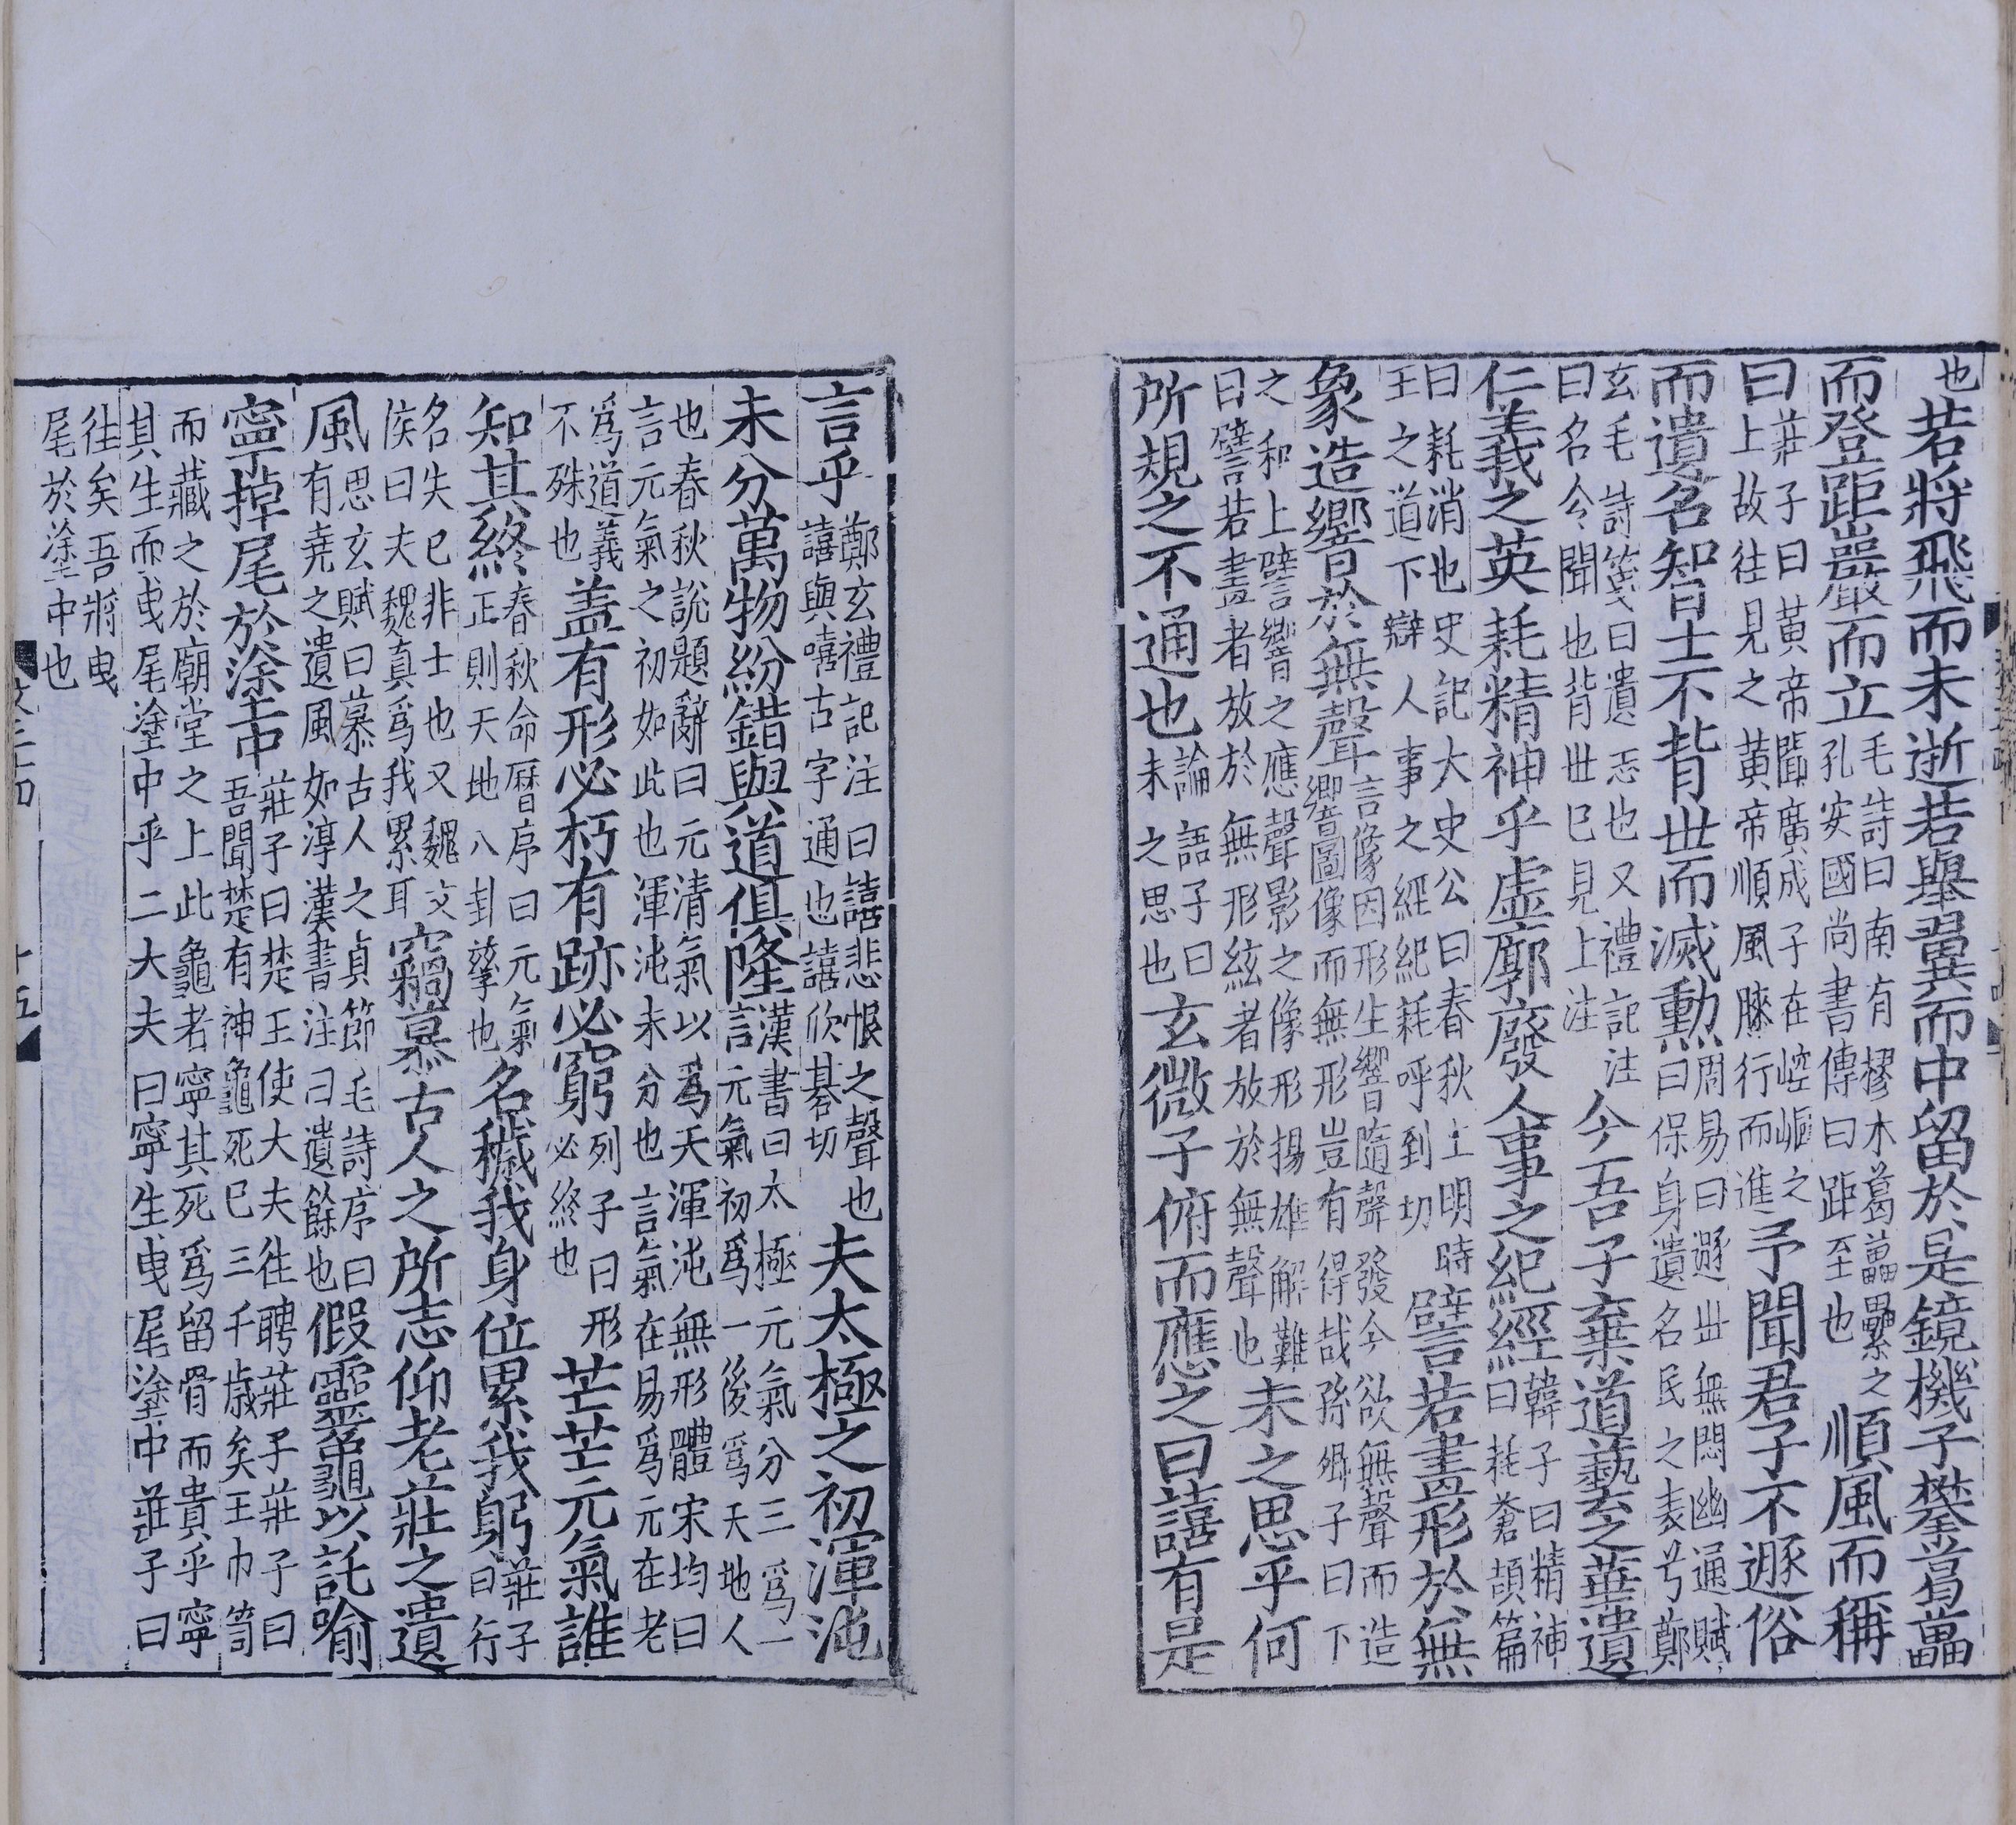 也若將飛而未逝若舉翼而中留於是鏡機子攀葛藟
而登距巖而立毛詩曰南有樛木葛藟纍之孔安國尚書傳曰距至也順風而稱
曰莊子曰黃帝聞廣成子在崆峒之上故往見之黃帝順風膝行而進予聞君子不遯俗
而遺名智士不背世而滅勲周易曰遯世無悶幽通賦曰保身遺名民之表兮鄭
玄毛詩箋曰遺忘也又禮記注曰名令聞也背世已見上注今吾子棄道藝之華遺
仁義之英耗精神乎虛廓廢人事之紀經韓子曰精神曰耗蒼頡篇
曰耗消也史記大史公曰春秋上明時王之道下辯人事之經紀耗呼到切譬若畫形於無
象造響於無聲言像因形生響隨聲發今欲無聲而造響圖像而無形豈有得哉孫卿子曰下
之和上譬響之應聲影之像形揚雄解難曰譬若畫者放於無形絃者放於無聲也未之思乎何
所規之不通也論語子曰未之思也玄微子俯而應之曰譆有是
言乎鄭玄禮記注曰譆悲恨之聲也譆與嘻古字通也譆欣碁切夫太極之初渾沌
未分萬物紛錯與道俱隆漢書曰太極元氣分三爲一言元氣初爲一後爲天地人
也春秋說題辭曰元清氣以爲天渾沌無形體宋均曰言元氣之初如此也渾沌未分也言氣在易爲元在老
爲道義不殊也盖有形必朽有跡必窮列子曰形必終也芒芒元氣誰
知其終春秋命曆序曰元氣正則天地八卦孳也名穢我身位累我躬莊子曰行
名失已非士也又魏文侯曰夫魏真爲我累耳竊慕古人之所志仰老莊之遺
風思玄賦曰慕古人之貞節毛詩序曰有堯之遺風如淳漢書注曰遺餘也假靈龜以託喻
寧掉尾於塗中莊子曰楚王使大夫往聘莊子莊子曰吾聞楚有神龜死已三千歲矣王巾笥
而藏之於廟堂之上此龜者寧其死爲留骨而貴乎寧其生而曳尾塗中乎二大夫曰寧生曳尾塗中莊子曰
往矣吾將曳尾於塗中也
十五